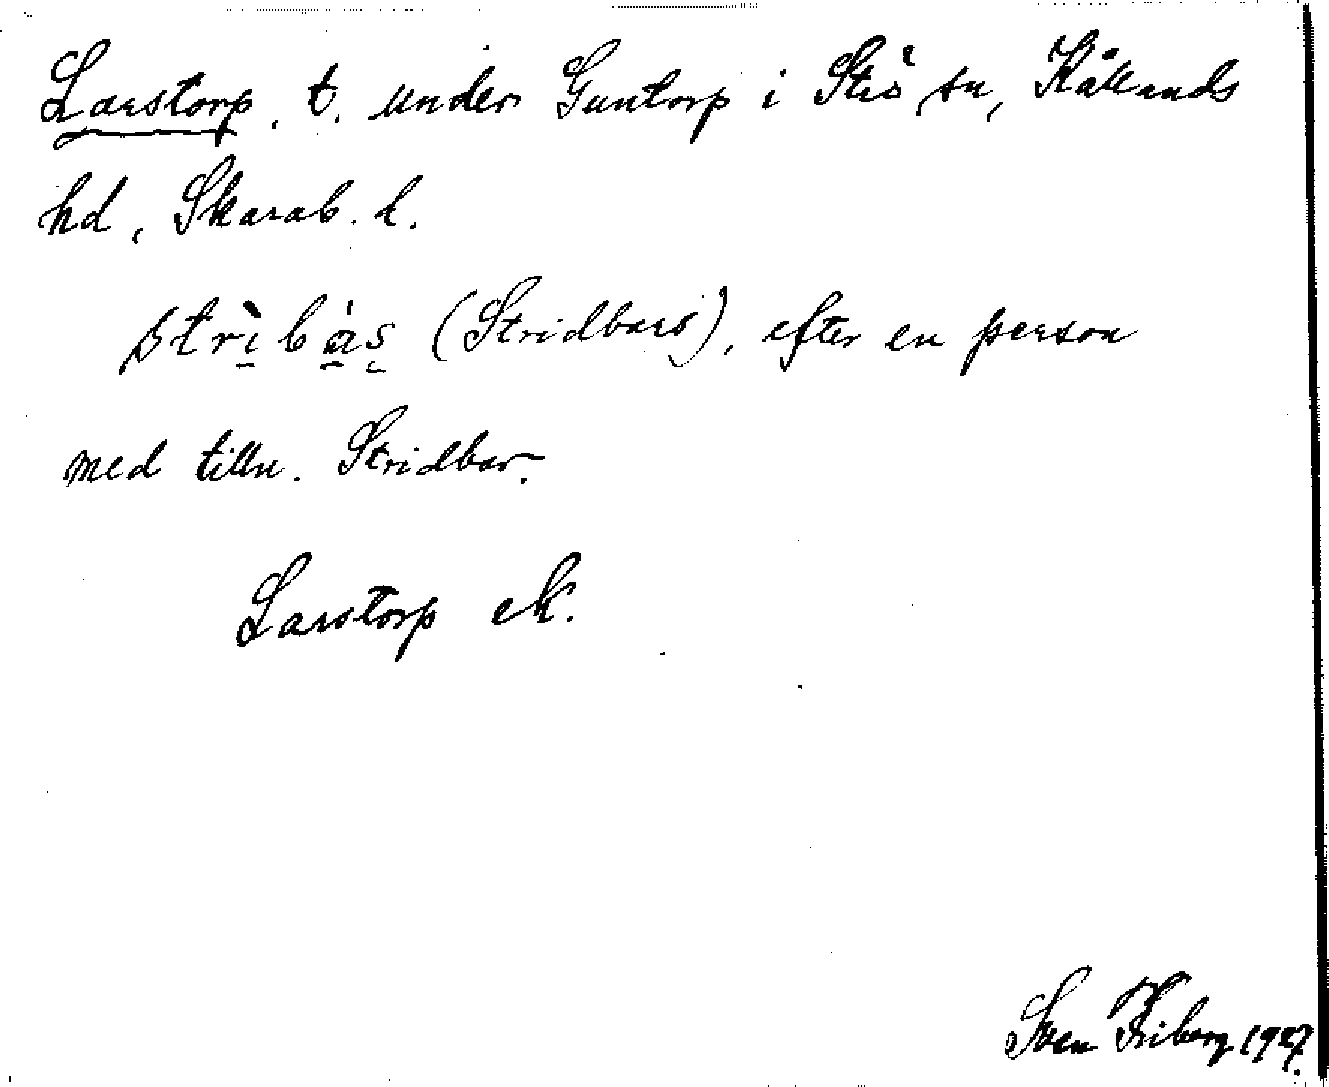 Larstorp, t. under Guntorp i Strö sn, Kållands
hd, Skarab. l.
strìbás (Stridbars), efter en person
med tilln. Stridbar.
Larstorp ek.
Sven Friberg 1927.